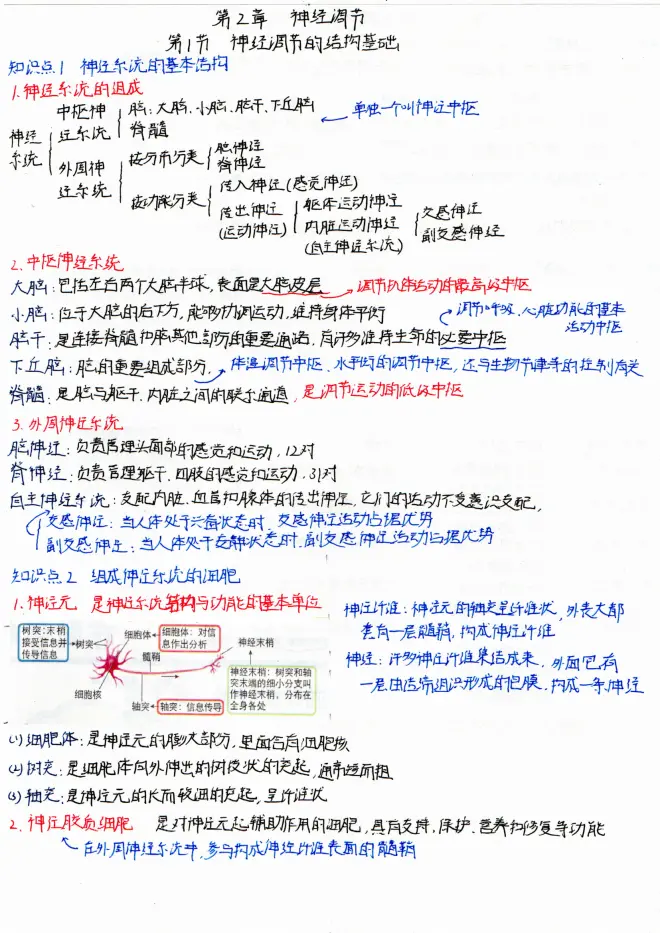 第2章 神经调节
第1节 神经调节的结构基础
知识点1 神经系统的基本结构
1.神经系统的组成
神经系统
中枢神经系统
脑:大脑、小脑、脑干、下丘脑
脊髓
单独一个叫神经中枢
外周神经系统
按分布分类
脑神经
脊神经
按功能分类
传入神经(感觉神经)
传出神经(运动神经)
躯体运动神经
内脏运动神经(自主神经系统)
交感神经
副交感神经
2.中枢神经系统
大脑:包括左右两个大脑半球,表面是大脑皮层 调节机体活动的最高级中枢
小脑:位于大脑的后下方,能够协调运动,维持身体平衡
调节呼吸、心脏功能的基本活动中枢
脑干:是连接脊髓和脑其他部分的重要通路,有许多维持生命的必要中枢
下丘脑:脑的重要组成部分, 体温调节中枢、水平衡的调节中枢,还与生物节律等的控制有关
脊髓:是脑与躯干、内脏之间的联系通道,是调节运动的低级中枢
3.外周神经系统
脑神经:负责管理头面部的感觉和运动,12对
脊神经:负责管理躯干、四肢的感觉和运动,31对
自主神经系统:支配内脏、血管和腺体的传出神经,它们的活动不受意识支配,
交感神经:当人体处于兴奋状态时,交感神经活动占据优势
副交感神经:当人体处于安静状态时,副交感神经活动占据优势
知识点2 组成神经系统的细胞
1.神经元 是神经系统结构与功能的基本单位
神经纤维:神经元的轴突呈纤维状,外表大都
套有一层髓鞘,构成神经纤维
神经:许多神经纤维集结成束,外面包有
一层由结缔组织形成的包膜,构成一条神经
树突:末梢
接受信息并
传导信息
树突
细胞体
细胞体:对信
息作出分析
神经末梢
髓鞘
细胞核
轴突
轴突:信息传导
神经末梢:树突和轴
突末端的细小分支叫
作神经末梢,分布在
全身各处
(1)细胞体:是神经元的膨大部分,里面含有细胞核
(2)树突:是细胞体向外伸出的树枝状的突起,通常短而粗
(3)轴突:是神经元的长而较细的突起,呈纤维状
2.神经胶质细胞 是对神经元起辅助作用的细胞,具有支持、保护、营养和修复等功能
在外周神经系统中,参与构成神经纤维表面的髓鞘